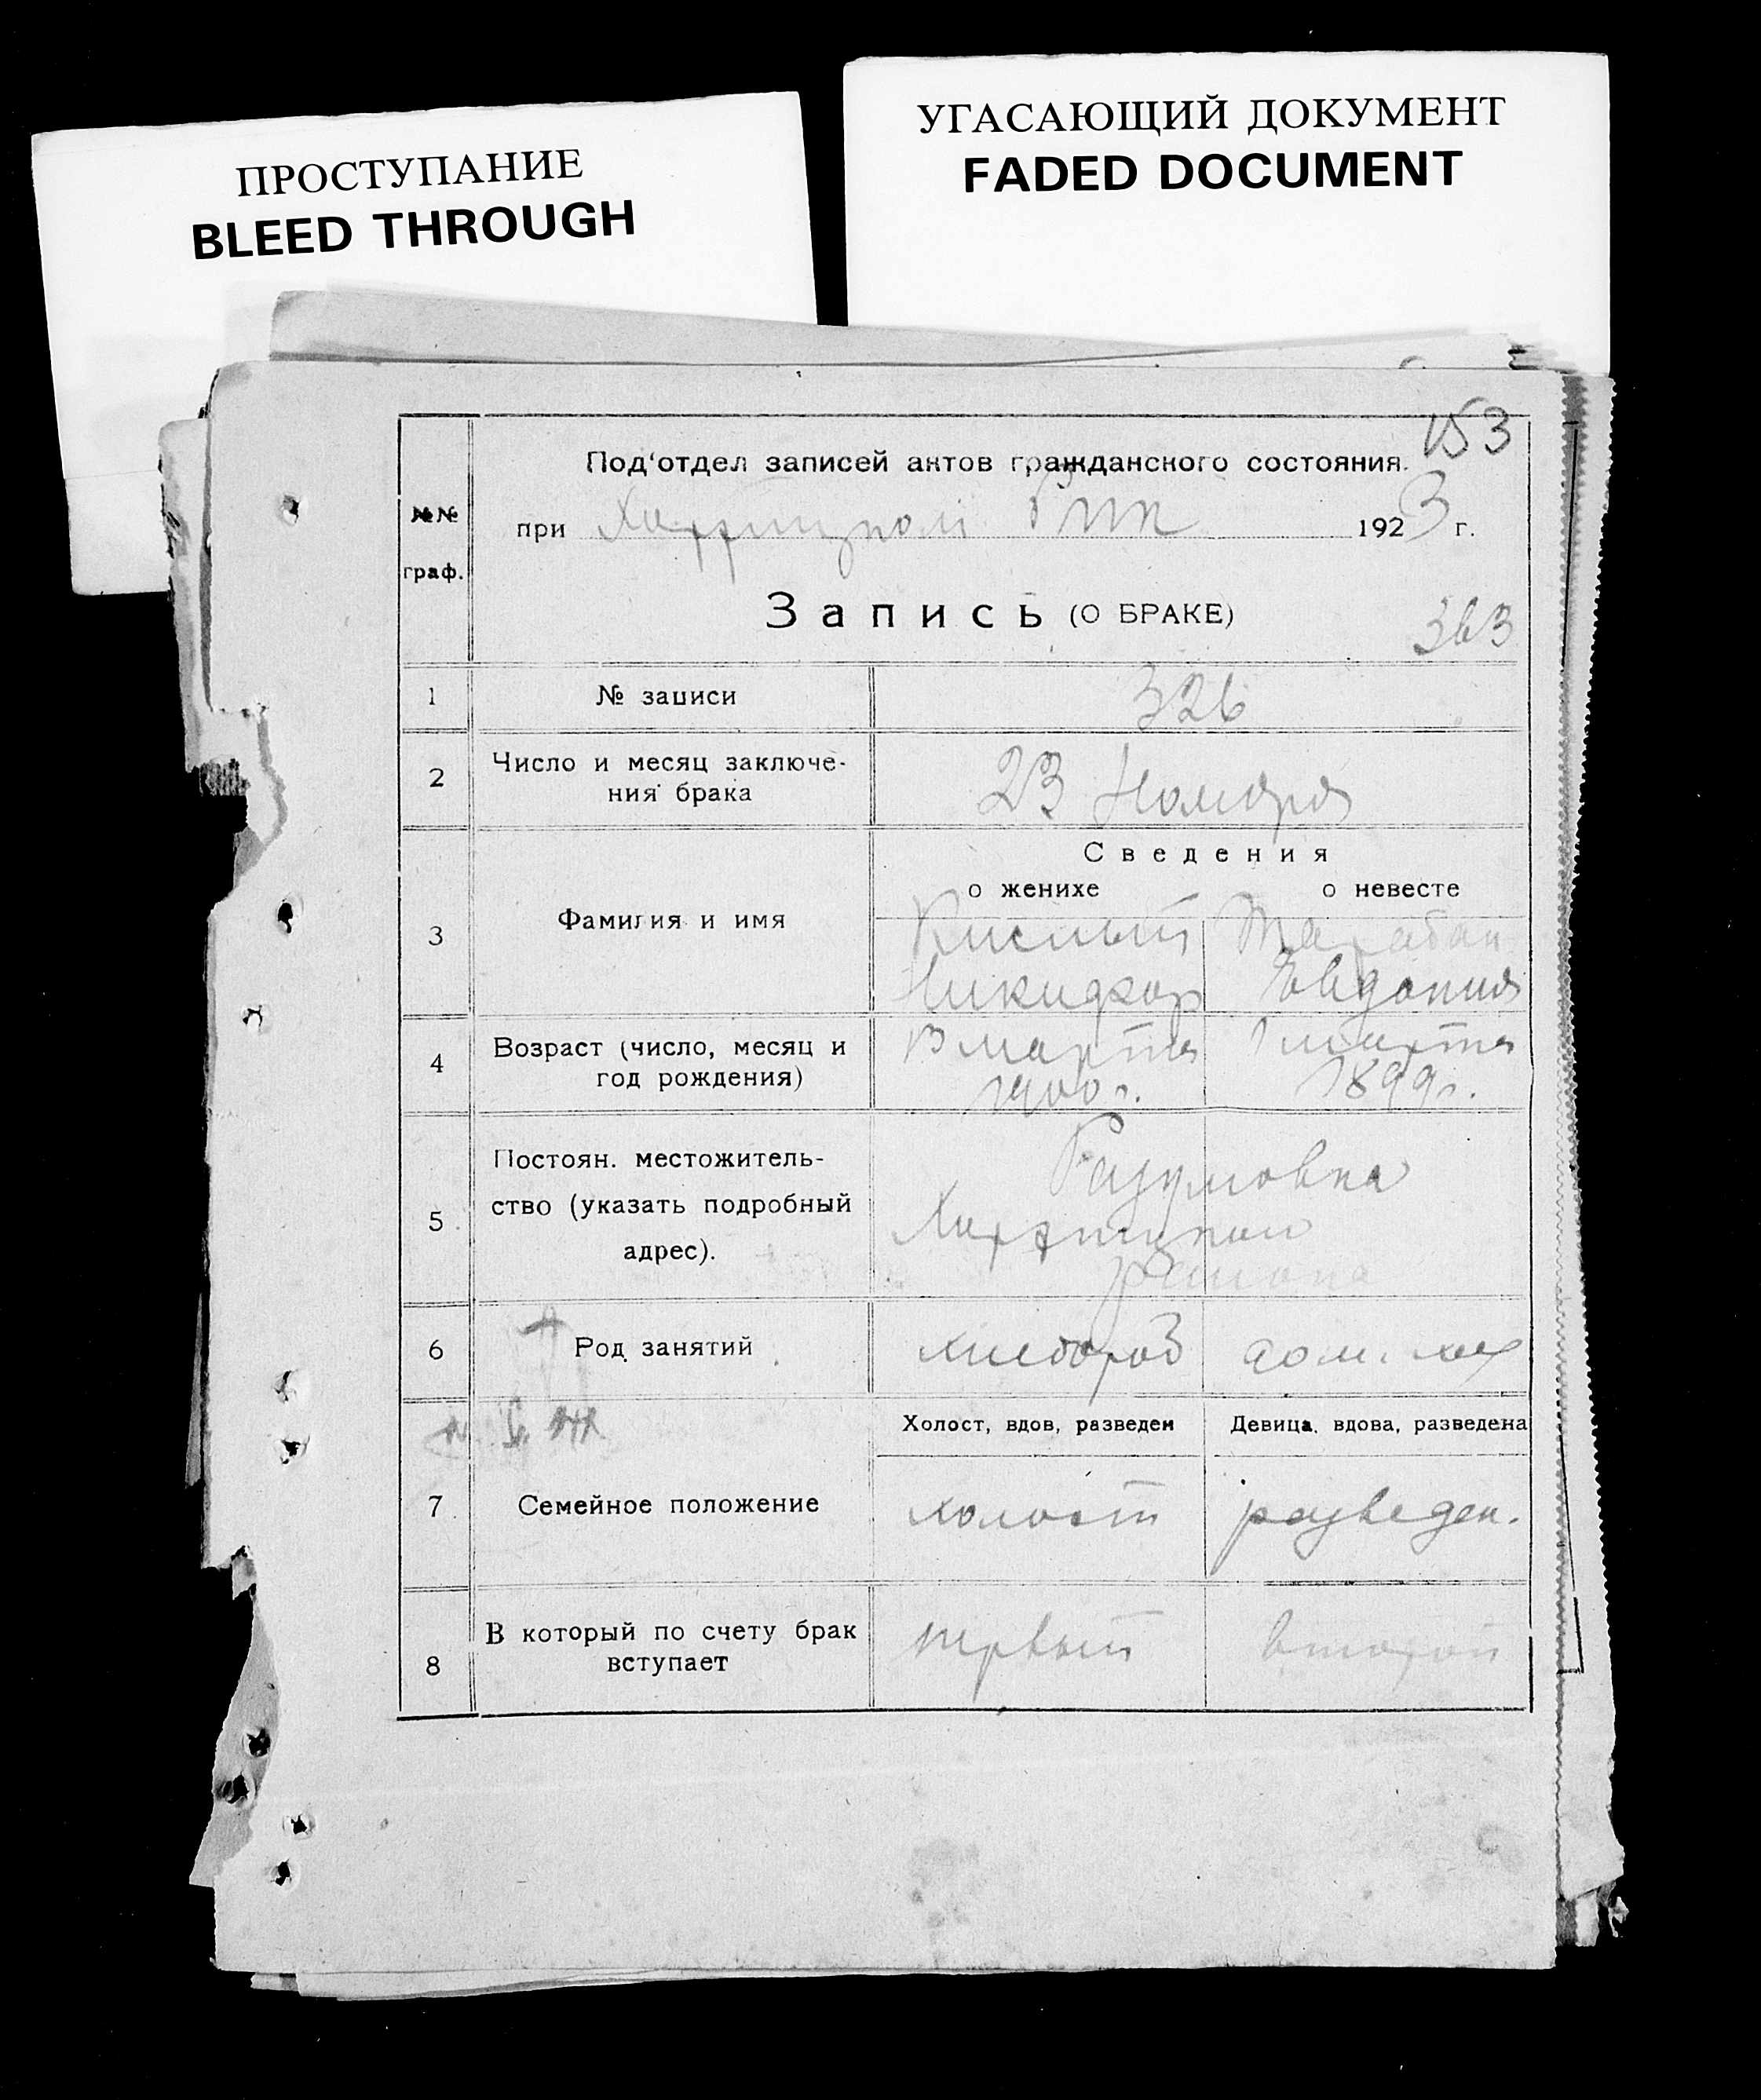 ПРОСТУПАНИЕ
BLEED THROUGH
УГАСАЮЩИЙ ДОКУМЕНТ
FADED DOCUMENT
153
Под'отдел записей актов гражданского состояния.
№№ граф.
при Хортицком Рик 1923 г.
Запись (О БРАКЕ)
363
1 № записи 326
2 Число и месяц заключе-
ния брака 23 Ноября
Сведения
о женихе о невесте
3 Фамилия и имя Кислый Тараban
Никифор Евдокия
4 Возраст (число, месяц и
год рождения) марта 1 марта
1900 г. 1899 г.
5 Постоян. местожитель-
ство (указать подробный
адрес). Разумовка
Хортицкого
района
6 Род занятий хлебороб дом. хоз
Холост, вдов, разведен Девица, вдова, разведена
7 Семейное положение холост разведен.
8 В который по счету брак
вступает первый второй